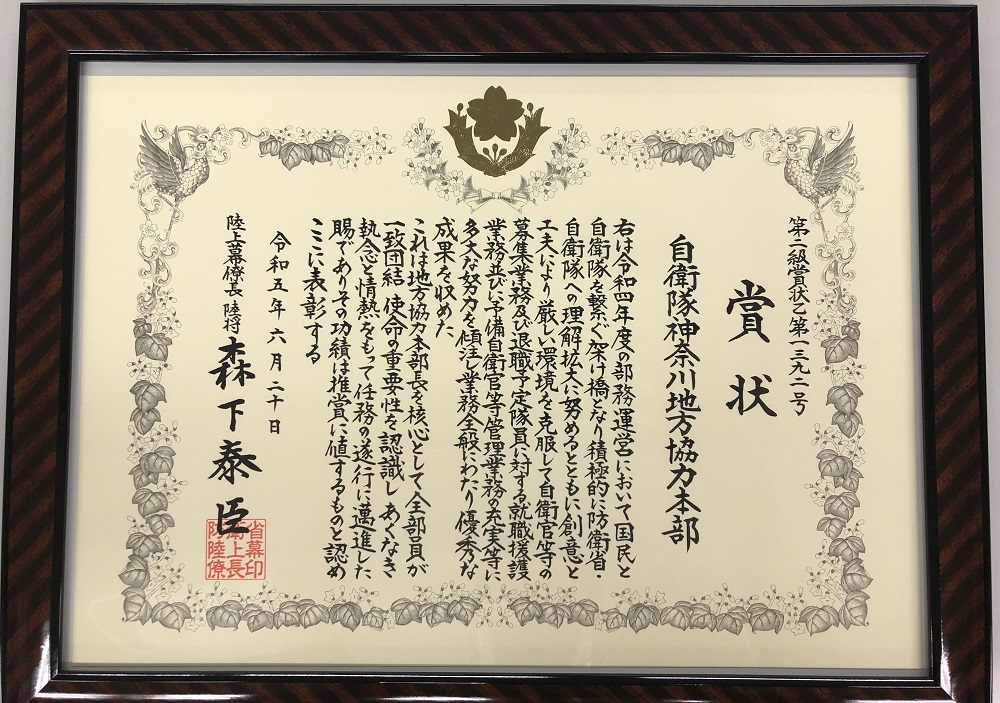 第二級賞状乙第一三九二号
賞状
自衛隊神奈川地方協力本部
右は令和四年度の部務運営において国民と
自衛隊を繋ぐ架け橋となり積極的に防衛省・
自衛隊への理解拡大に努めるとともに創意と
工夫により厳しい環境を克服して自衛官等の
募集業務及び退職予定隊員に対する就職援護
業務並びに予備自衛官等管理業務の充実等に
多大な努力を傾注し業務全般にわたり優秀な
成果を収めた
これは地方協力本部長を核心として全部員が
一致団結 使命の重要性を認識しあくなき
執念と情熱をもって任務の遂行に邁進した
賜でありその功績は推賞に値するものと認め
ここに表彰する
令和五年六月二十日
陸上幕僚長 陸将 森下泰臣
省幕印
衛上長
防陸僚